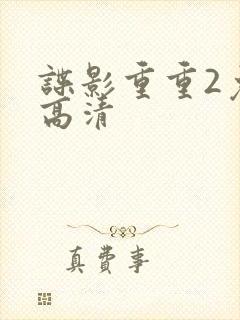 諜影重重2
高清
真費事